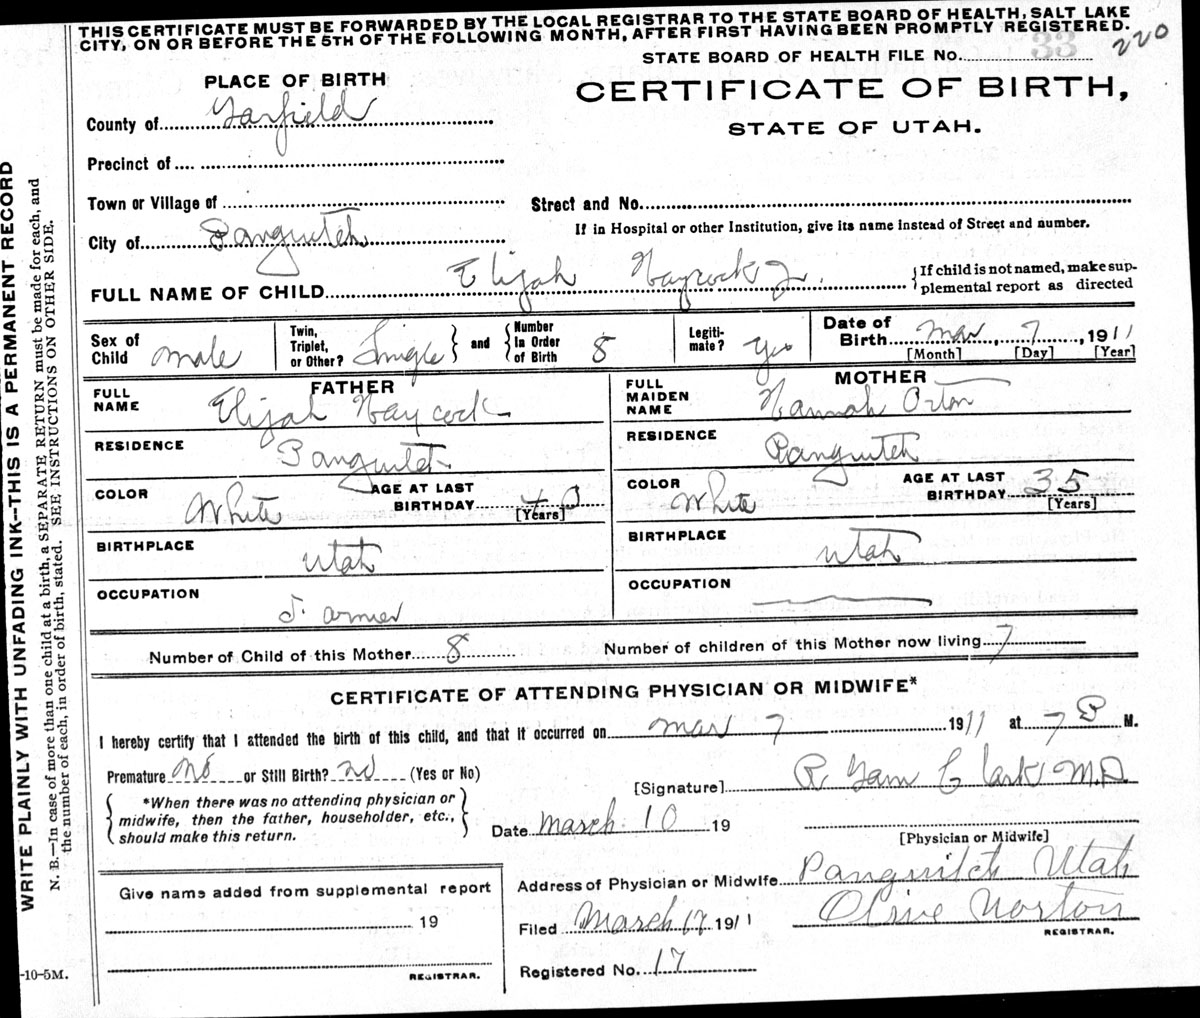 THIS CERTIFICATE MUST BE FORWARDED BY THE LOCAL REGISTRAR TO THE STATE BOARD OF HEALTH, SALT LAKE
CITY, ON OR BEFORE THE 5TH OF THE FOLLOWING MONTH, AFTER FIRST HAVING BEEN PROMPTLY REGISTERED.
220
STATE BOARD OF HEALTH FILE No. 33
PLACE OF BIRTH
CERTIFICATE OF BIRTH,
STATE OF UTAH.
County of Garfield
Precinct of
Town or Village of
Street and No.
City of Panguitch
If in Hospital or other Institution, give its name instead of Street and number.
FULL NAME OF CHILD Elijah Haycock Jr.
If child is not named, make sup-
plemental report as directed
Sex of Child male
Twin, Triplet, or Other? Single and Number In Order of Birth 8
Legiti-mate? Yes
Date of Birth Mar 7, 1911
[Month] [Day] [Year]
FATHER
FULL NAME Elijah Haycock
MOTHER
FULL MAIDEN NAME Hannah Orton
RESIDENCE Panguitch
RESIDENCE Panguitch
COLOR White AGE AT LAST BIRTHDAY 40 [Years]
COLOR White AGE AT LAST BIRTHDAY 35 [Years]
BIRTHPLACE Utah
BIRTHPLACE Utah
OCCUPATION Farmer
OCCUPATION
Number of Child of this Mother 8 Number of children of this Mother now living 7
CERTIFICATE OF ATTENDING PHYSICIAN OR MIDWIFE*
I hereby certify that I attended the birth of this child, and that it occurred on Mar 7 1911 at 7 P M.
Premature No or Still Birth? No (Yes or No)
[Signature] R. Garn Clark M.D.
*When there was no attending physician or
midwife, then the father, householder, etc.,
should make this return.
Date March 10 19
[Physician or Midwife]
Give name added from supplemental report
19
REGISTRAR.
Address of Physician or Midwife Panguitch Utah
Filed March 17 1911 Olive Norton
REGISTRAR.
Registered No. 17
-10-5M.
WRITE PLAINLY WITH UNFADING INK--THIS IS A PERMANENT RECORD
N. B.—In case of more than one child at a birth, a SEPARATE RETURN must be made for each, and
the number of each, in order of birth, stated. SEE INSTRUCTIONS ON OTHER SIDE.